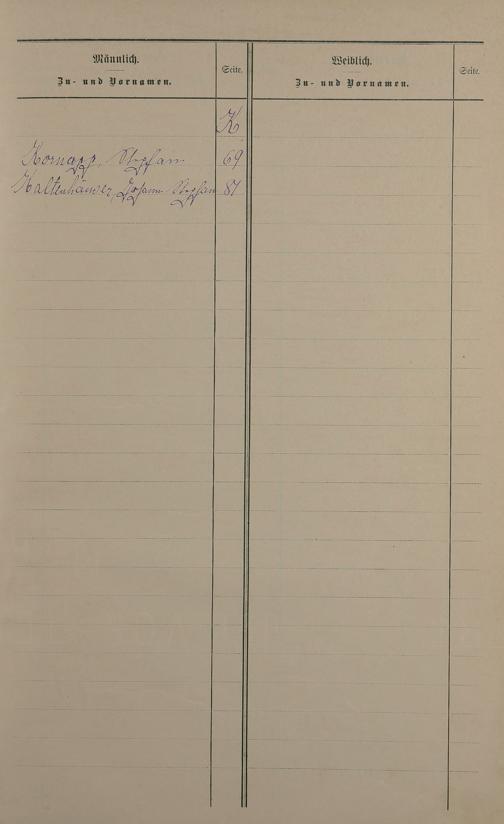 Männlich.
Zu- und Vornamen.
Seite.
Weiblich.
Zu- und Vornamen.
Seite.
K
Kornapp, Stephan 69
Kaltenhäuser, Johann Stephan 81